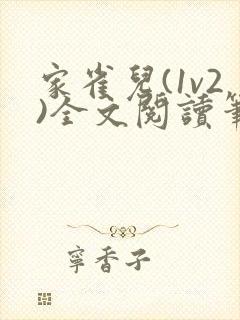 家雀兒(1v2
)全文閱讀筆
寧香子